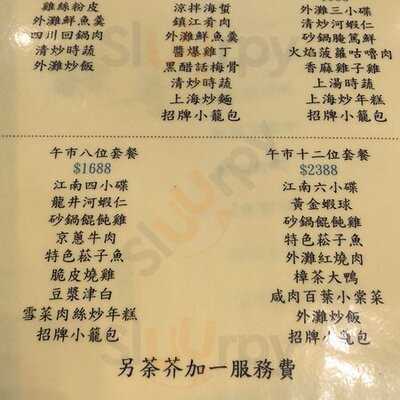 雞絲粉皮
外灘鮮魚羹
四川回鍋肉
清炒時蔬
外灘炒飯
涼拌海蜇
鎮江肴肉
外灘鮮魚羹
醬爆雞丁
黑醋話梅骨
清炒時蔬
上海炒麵
招牌小籠包
外灘三小碟
清炒河蝦仁
砂鍋腌篤鮮
火焰菠蘿咕嚕肉
香麻雞子雞
上湯時蔬
上海炒年糕
招牌小籠包
午市八位套餐
$1688
江南四小碟
龍井河蝦仁
砂鍋餛飩雞
京蔥牛肉
特色菘子魚
脆皮燒雞
豆漿津白
雪菜肉絲炒年糕
招牌小籠包
午市十二位套餐
$2388
江南六小碟
黃金蝦球
砂鍋餛飩雞
特色菘子魚
外灘紅燒肉
樟茶大鴨
咸肉百葉小棠菜
外灘炒飯
招牌小籠包
另茶芥加一服務費